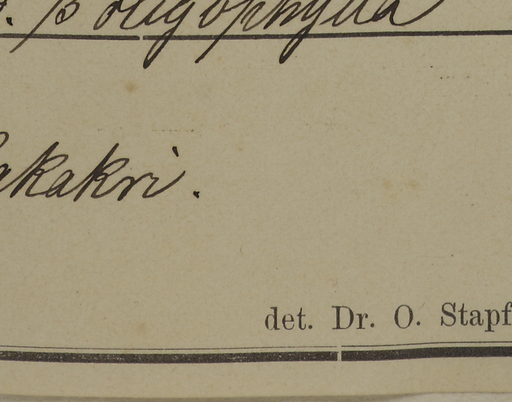 β oligophylla
akakri.
det. Dr. O. Stapf